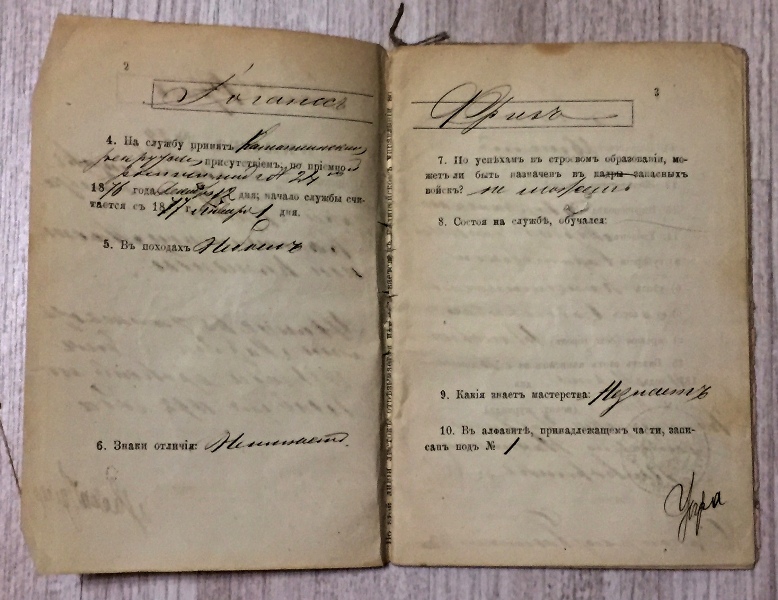 2
Іоганнсъ
4. На службу принятъ Камышинскимъ
рекрутск. присутствіемъ, по пріемной
росписи подъ № 24
1876 года, Декабря 12 дня; начало службы счи-
тается съ 1877 г. Января 1 дня.
5. Въ походахъ Небылъ
6. Знаки отличія: Неимѣетъ.
3
7. По успѣхамъ въ строевомъ образованіи, мо-
жетъ ли быть назначенъ въ кадры запасныхъ
войскъ? не можетъ
8. Состоя на службѣ, обучался:
9. Какія знаетъ мастерства: Незнаетъ
10. Въ алфавитѣ, принадлежащемъ части, запи-
санъ подъ № 1